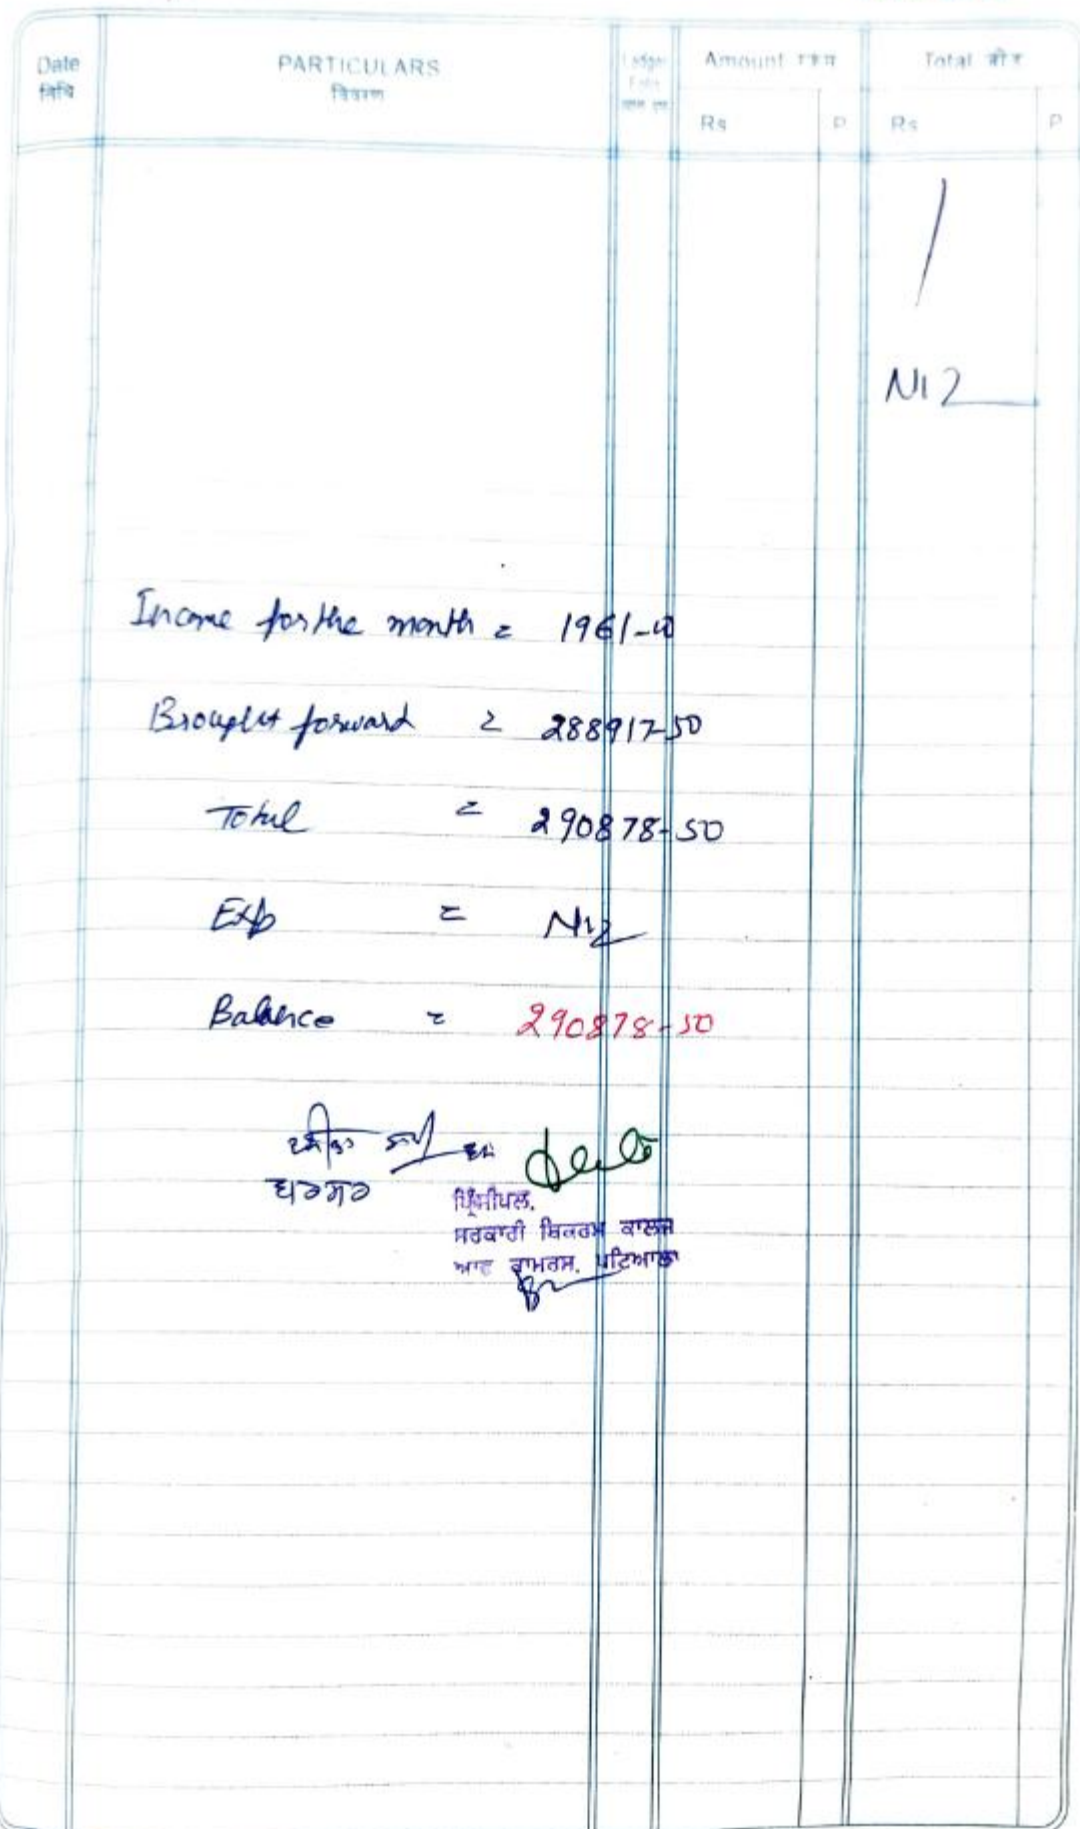 Date PARTICULARS Ledger Folio Amount रकम Total जोड़
तिथि विवरण
Rs P Rs P
Nil
Income for the month = 1961-00
Brought forward = 288917-50
Total = 290878-50
Exp = Nil
Balance = 290878-50
ਬਰਸਰ
ਪ੍ਰਿੰਸੀਪਲ,
ਸਰਕਾਰੀ ਬਿਕਰਮ ਕਾਲਜ
ਆਫ ਕਾਮਰਸ, ਪਟਿਆਲਾ